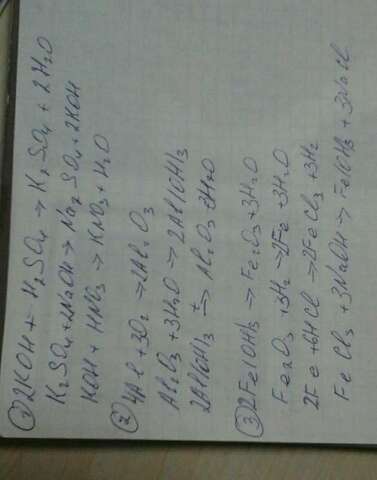 ① 2KOH + H₂SO₄ → K₂SO₄ + 2H₂O
K₂SO₄ + 2NaOH → Na₂SO₄ + 2KOH
KOH + HNO₃ → KNO₃ + H₂O
② 4Al + 3O₂ → 2Al₂O₃
Al₂O₃ + 3H₂O → 2Al(OH)₃
2Al(OH)₃ t→ Al₂O₃ 3H₂O
③ 2Fe(OH)₃ → Fe₂O₃ + 3H₂O
Fe₂O₃ + 3H₂ → 2Fe + 3H₂O
2Fe + 6HCl → 2FeCl₃ + 3H₂
FeCl₃ + 3NaOH → Fe(OH)₃ + 3NaCl